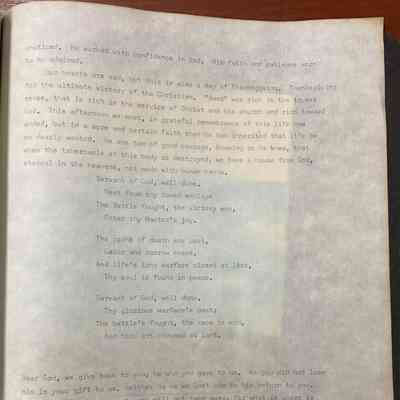 He worked with confidence in God. His faith and patience were
to be admired.
Our hearts are sad, but this is also a day of Thanksgiving. Thanksgiving
for the ultimate victory of the Christian. was rich in the truest
sense, that is rich in the service of Christ and the church and rich toward
God. This afternoon we meet, in grateful remembrance of this life now
ended, but in a sure and certain faith that he has inherited that life he
so dearly wanted. He was one of good courage, knowing as he knew, that
when the tabernacle of this body is destroyed, we have a house from God,
eternal in the heavens, not made with human hands.
Servant of God, well done,
Rest from thy loved employ;
The Battle fought, the victory won,
Enter thy Master's joy.
The pains of death are past,
Labor and sorrow cease,
And life's long warfare closed at last,
Thy soul is found in peace.
Servant of God, well done,
Thy glorious warfare's past;
The battle's fought, the race is won,
And thou art crowned at last.
Dear God, we give back to you, he who you gave to us. As you did not lose
him in your gift to us, neither do we we lost him in his return to you.